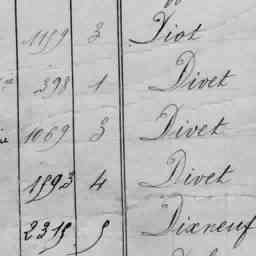 1159 3 Diot
398 1 Divet
1069 3 Divet
1593 4 Divet
2315 5 Dixneuf